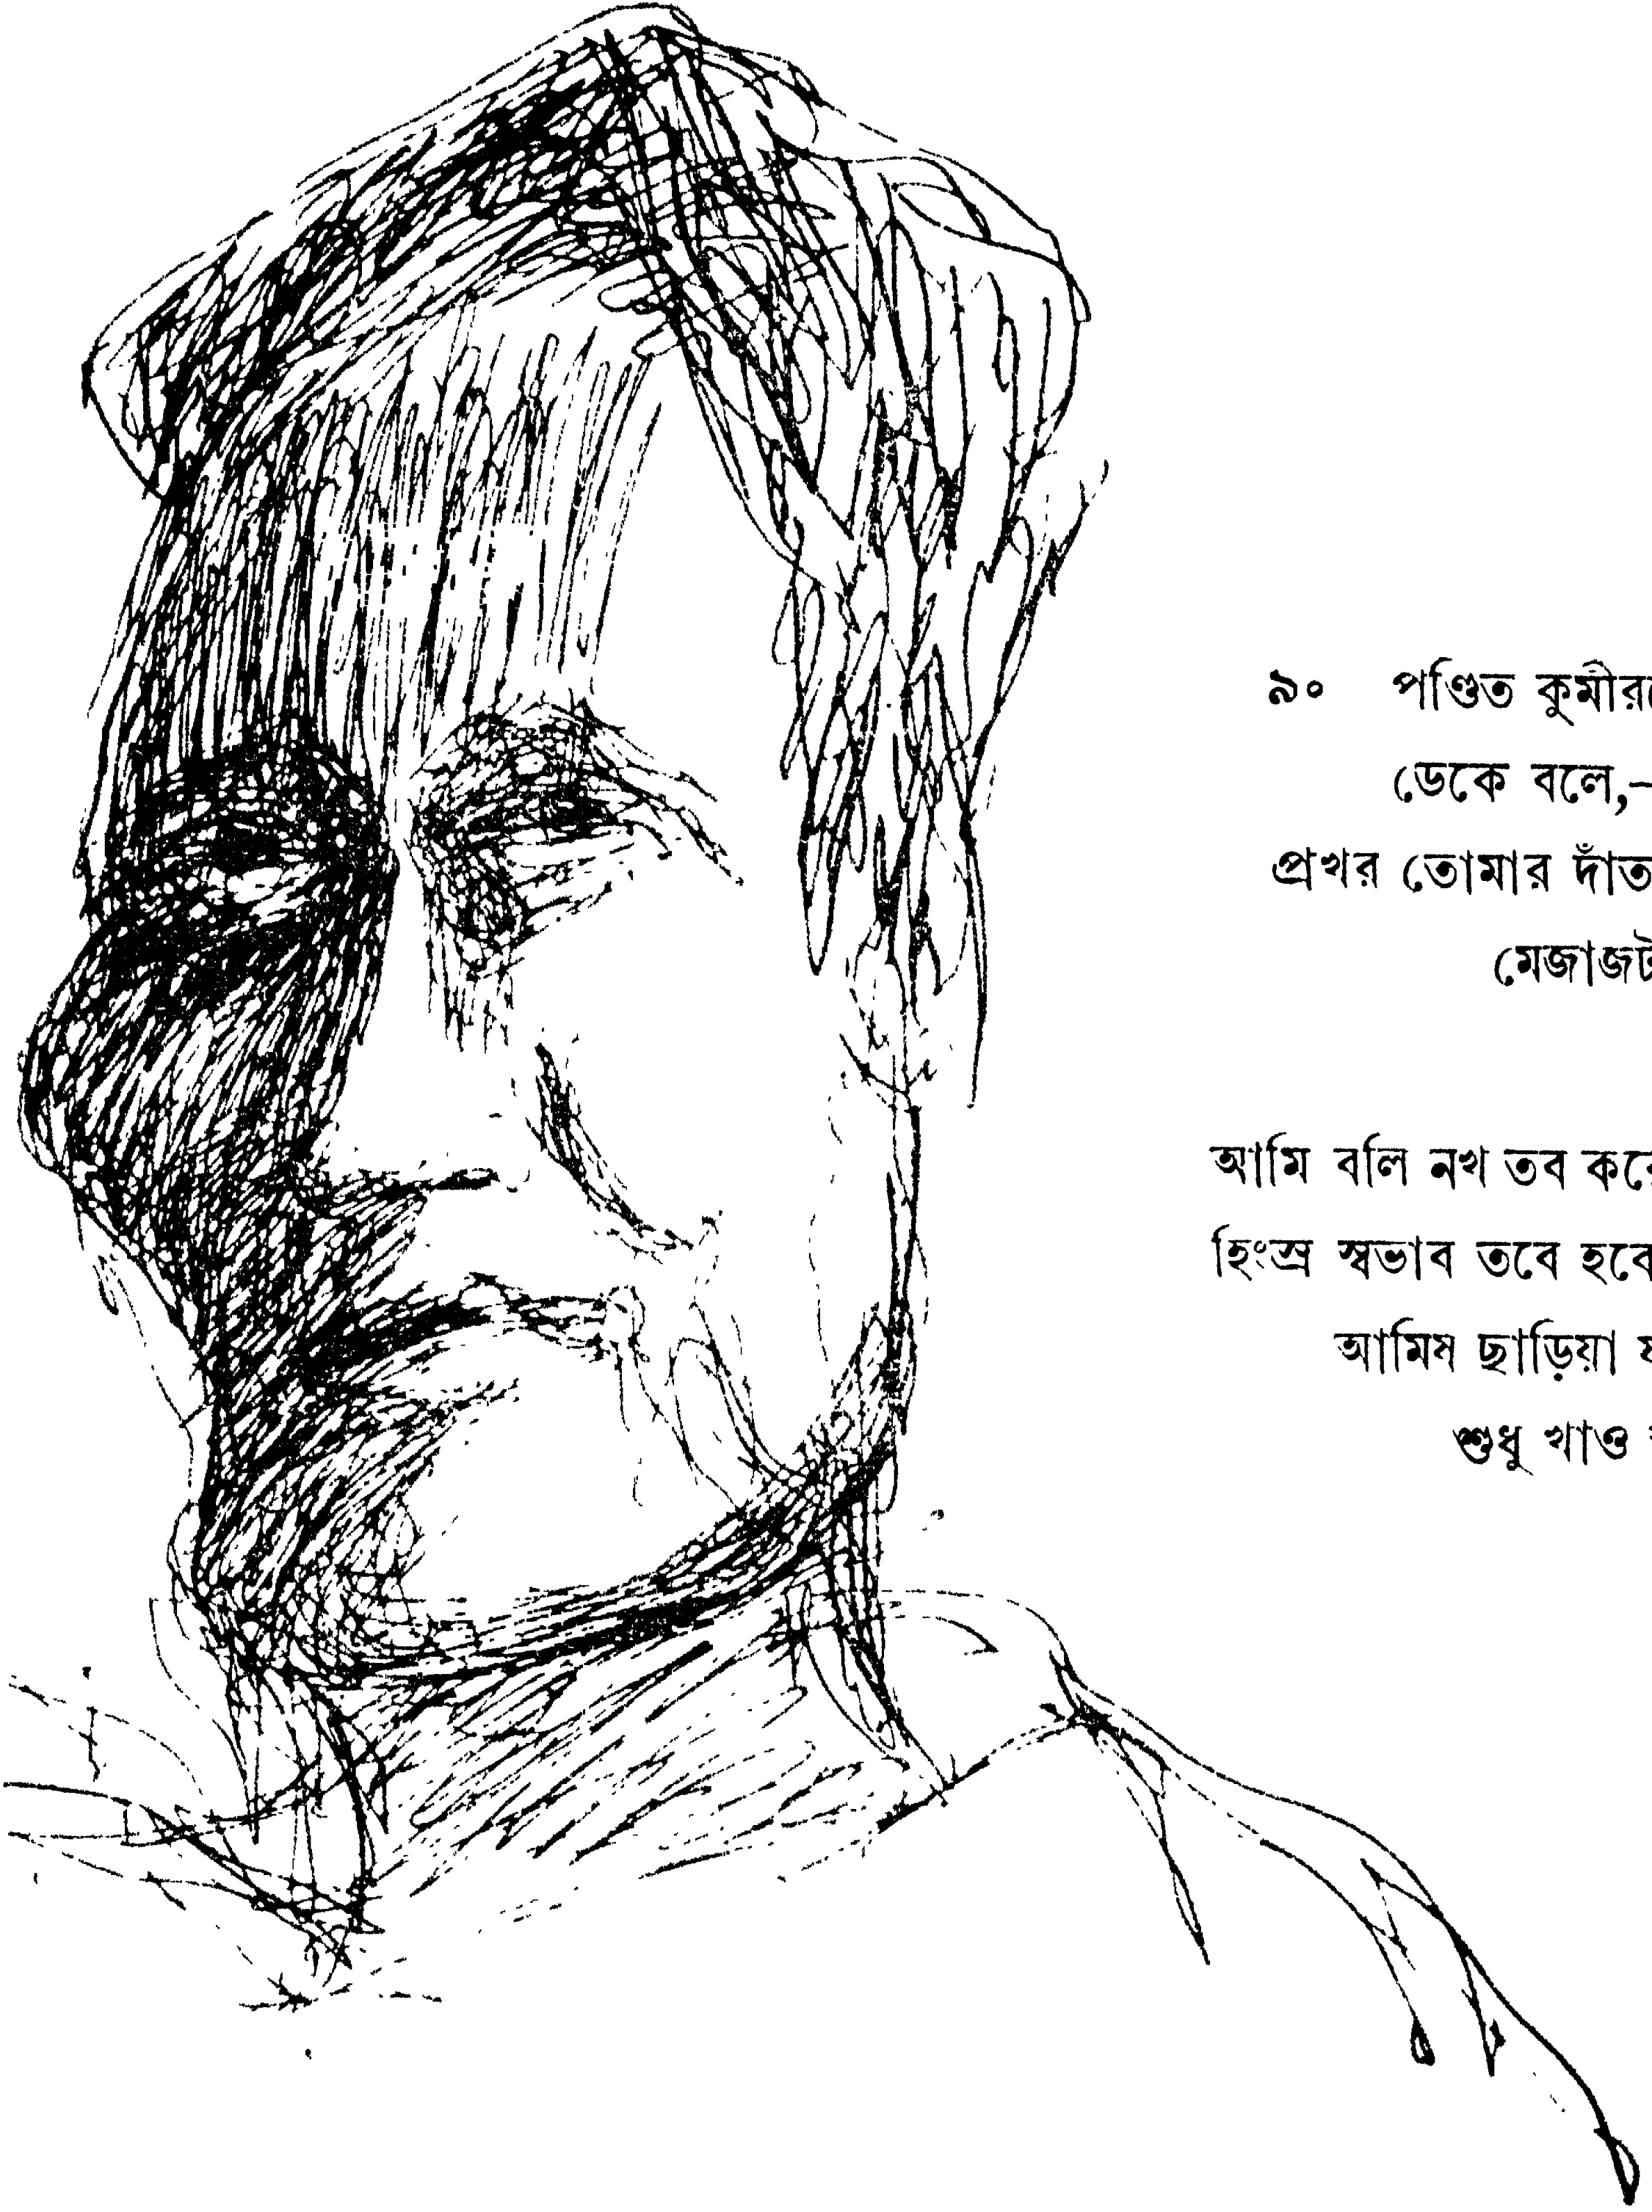 ৯০ পণ্ডিত কুমীর
ডেকে বলে,—
প্রখর তোমার দাঁত
মেজাজট
আমি বলি নখ তব করে
হিংস্র স্বভাব তবে হবে
আমিষ ছাড়িয়া য
শুধু খাও